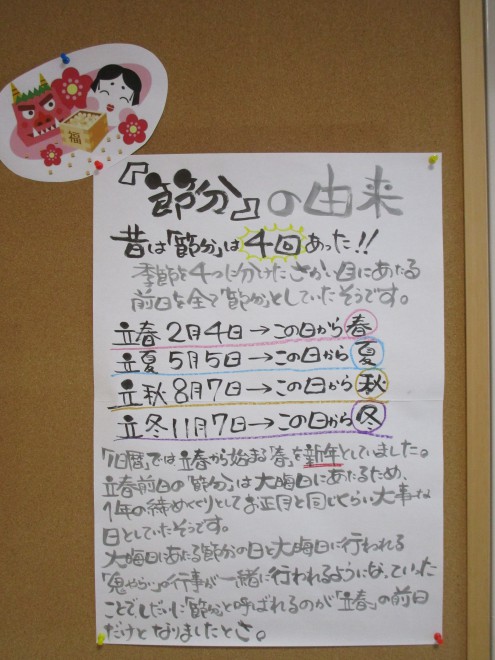 福
『節分』の由来
昔は「節分」は4回あった!!
季節を4つに分けたさかい目にあたる
前日を全て「節分」としていたそうです。
立春2月4日→この日から春
立夏5月5日→この日から夏
立秋8月7日→この日から秋
立冬11月7日→この日から冬
「旧暦」では立春から始まる「春」を新年としていました。
立春前日の「節分」は大晦日にあたるため、
1年の締めくくりとしてお正月と同じくらい大事な
日としていたそうです。
大晦日にあたる節分の日と大晦日に行われる
「鬼やらい」の行事が一緒に行われるようになっていった
ことでしだいに「節分」と呼ばれるのが「立春」の前日
だけとなりましたとさ。